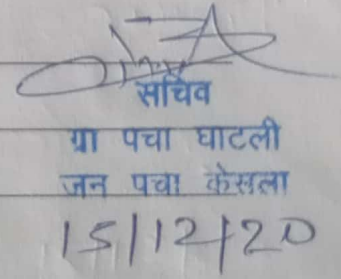 सचिव
ग्रा पचा घाटली
जन पचा केसला
15/12/20